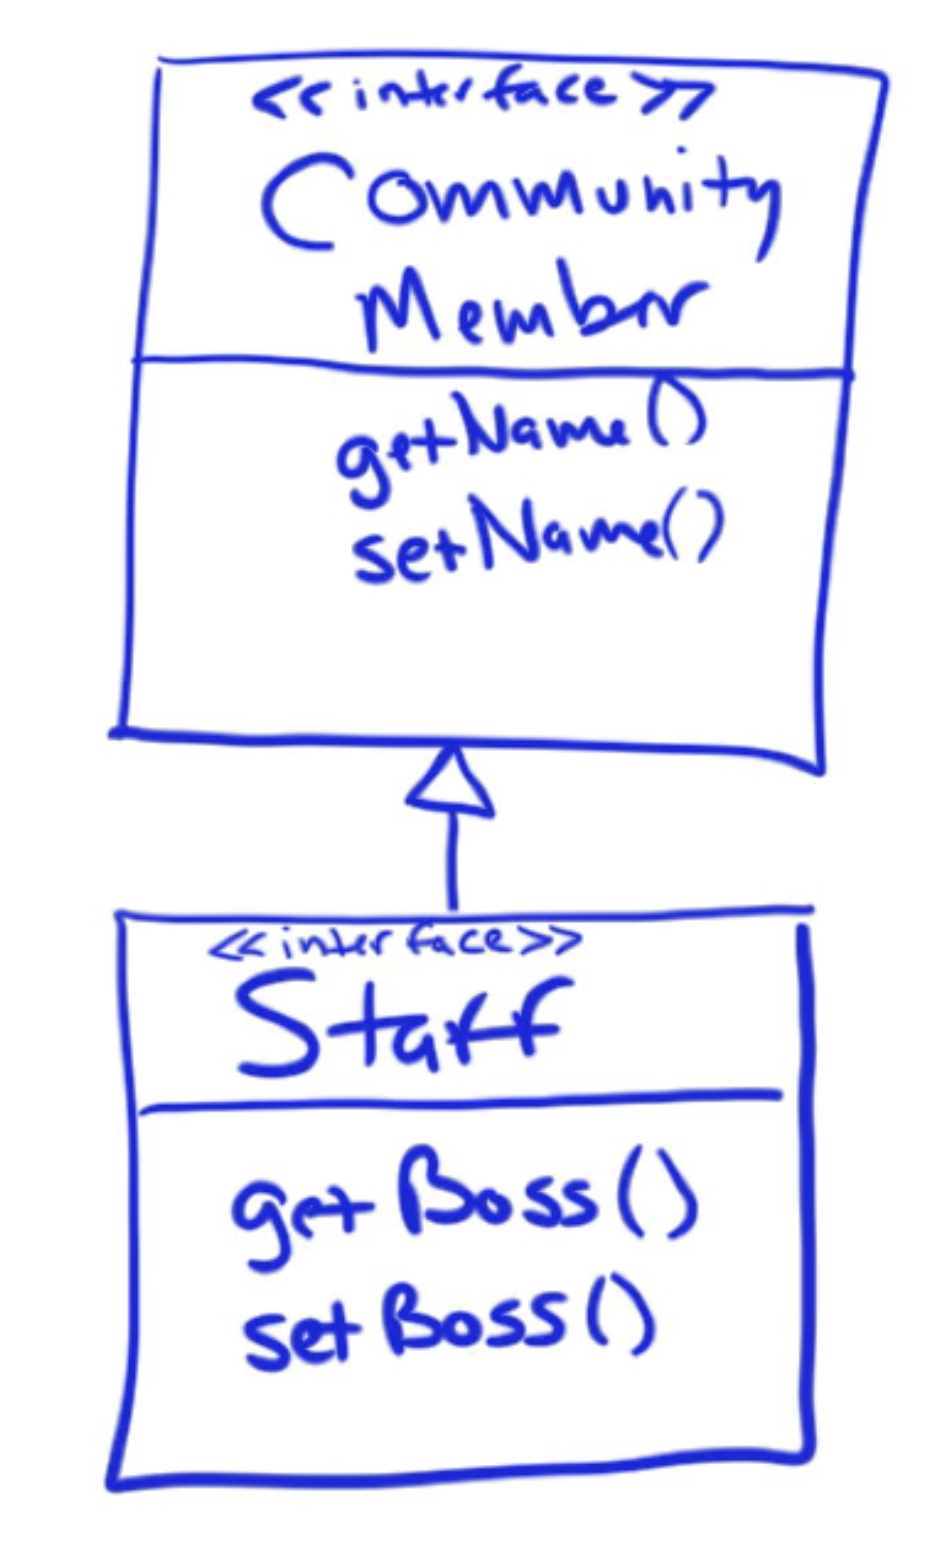 <<interface>>
Community
Member
getName()
setName()
<<interface>>
Staff
getBoss()
setBoss()